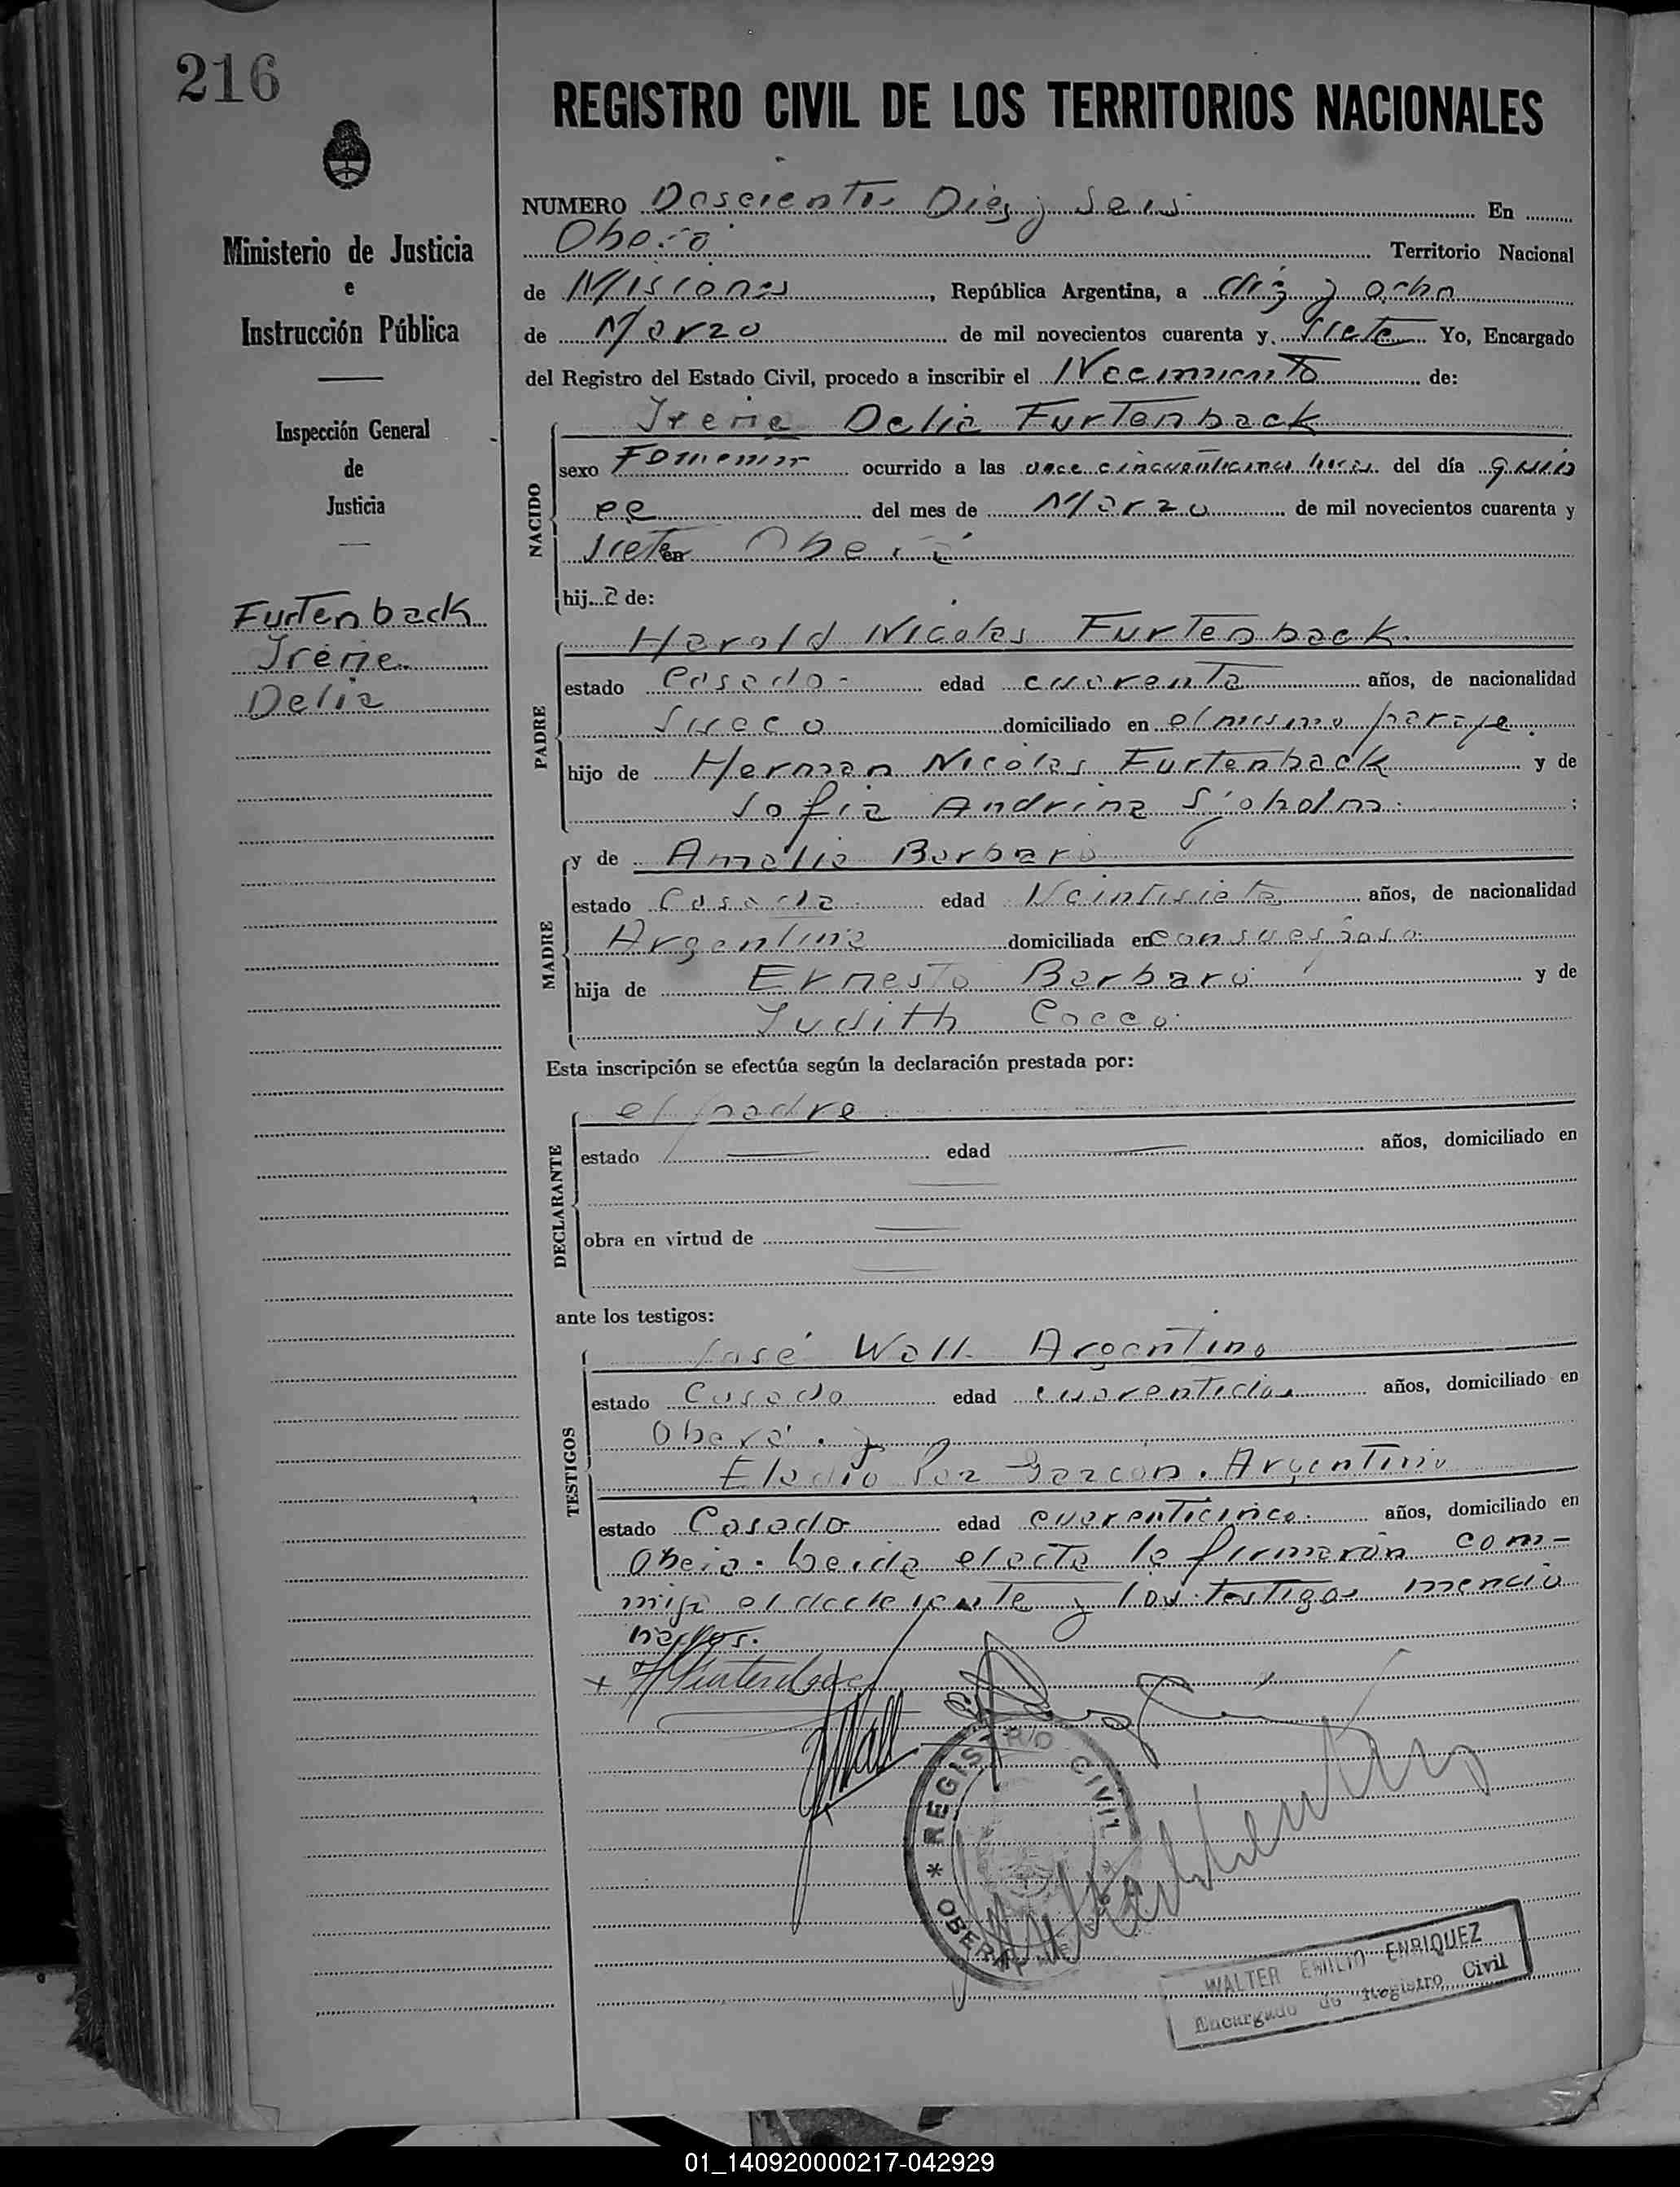 216
REGISTRO CIVIL DE LOS TERRITORIOS NACIONALES
Ministerio de Justicia
e
Instrucción Pública
Inspección General
de
Justicia
Furtenback
Irene
Delia
NUMERO Doscientos Diez y seis En
Oberá Territorio Nacional
de Misiones, República Argentina, a diez y ocho
de Marzo de mil novecientos cuarenta y siete Yo, Encargado
del Registro del Estado Civil, procedo a inscribir el Nacimiento de:
NACIDO
Irene Delia Furtenback
sexo Femenino ocurrido a las once cincuenticinco horas del día quin
ce del mes de Marzo de mil novecientos cuarenta y
siete en Oberá
hij a de:
PADRE
Harold Nicolas Furtenback
estado Casado edad cuarenta años, de nacionalidad
Sueco domiciliado en el mismo paraje
hijo de Herman Nicolas Furtenback y de
Sofia Andrina Sjoholm ;
MADRE
y de Amalia Barbaro
estado Casada edad Veintisiete años, de nacionalidad
Argentina domiciliada en con su esposo
hija de Ernesto Barbaro y de
Judith Cocco
Esta inscripción se efectúa según la declaración prestada por:
DECLARANTE
el padre
estado edad años, domiciliado en
obra en virtud de
ante los testigos:
TESTIGOS
José Wall Argentino
estado Casado edad cuarentidos años, domiciliado en
Oberá. y
Eladio Paz Garzon. Argentino
estado Casado edad cuarenticinco años, domiciliado en
Oberá. Leida el acta la firmaron con-
migo el declarante y los testigos mencio
nados.
J Wall
REGISTRO CIVIL
* OBERÁ
WALTER EMILIO ENRIQUEZ
Encargado de Registro Civil
01_140920000217-042929